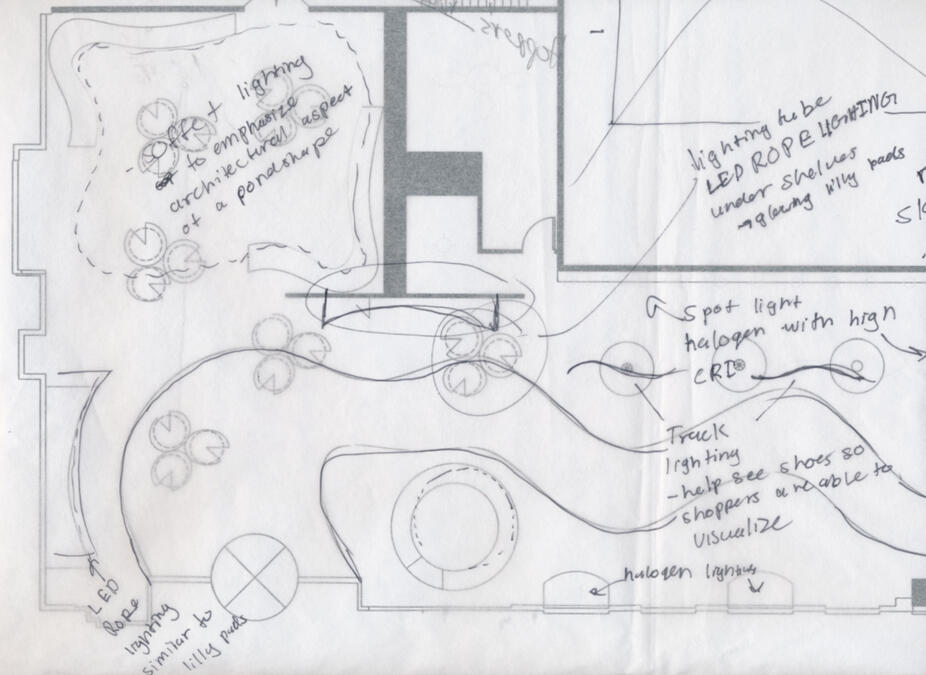 Soffet lighting
to emphasize
architectural aspect
of a pondshape
lighting tube
LED ROPE LIGHTING
under shelves
→ glowing lilly pads
spot light
halogen with high
CRI
Track
lighting
- help see shoes so
shoppers are able to
visualize
halogen lighting
LED
Rope
lighting
similar to
lilly pads